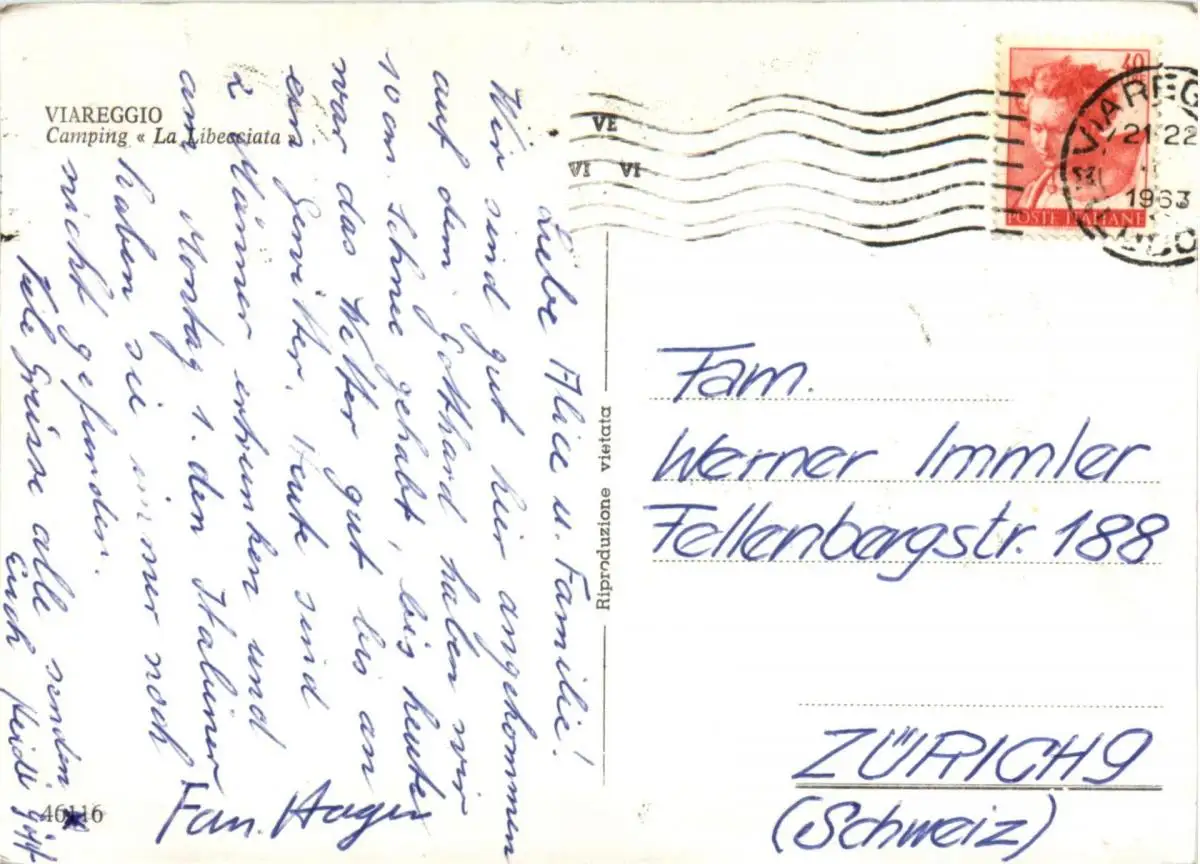 VIAREGGIO
Camping « La Libecciata »
Liebe Alice u. Familie!
Wir sind gut hier angekommen
auf dem Gotthard haben wir
10 cm. Schnee gehabt, bis heute
war das Wetter gut bis an
ein Gewitter. Heute sind
2 Männer ertrunken und
am Montag 1. den Italiener
haben sie immer noch
nicht gefunden.
Viele Grüsse alle senden
Euch Heidi
Fam. Hager
46116
Riproduzione vietata
VE
VI VI
40
POSTE ITALIANE
VIAREGG
21-22
1963
Fam.
Werner Immler
Fellenbergstr. 188
ZÜRICH 9
(Schweiz)